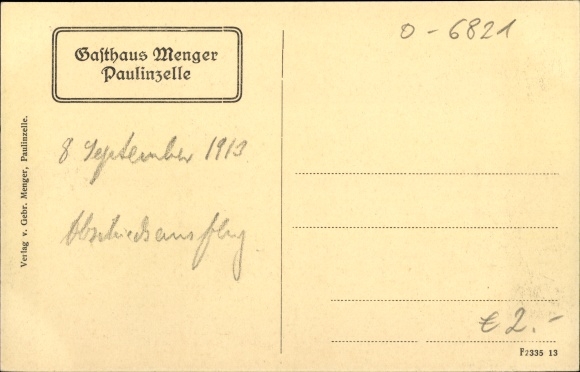 Gasthaus Menger
Paulinzelle
8 September 1913
Abschiedsausflug
Verlag v. Gebr. Menger, Paulinzelle.
0-6821
€ 2.-
F2335 13